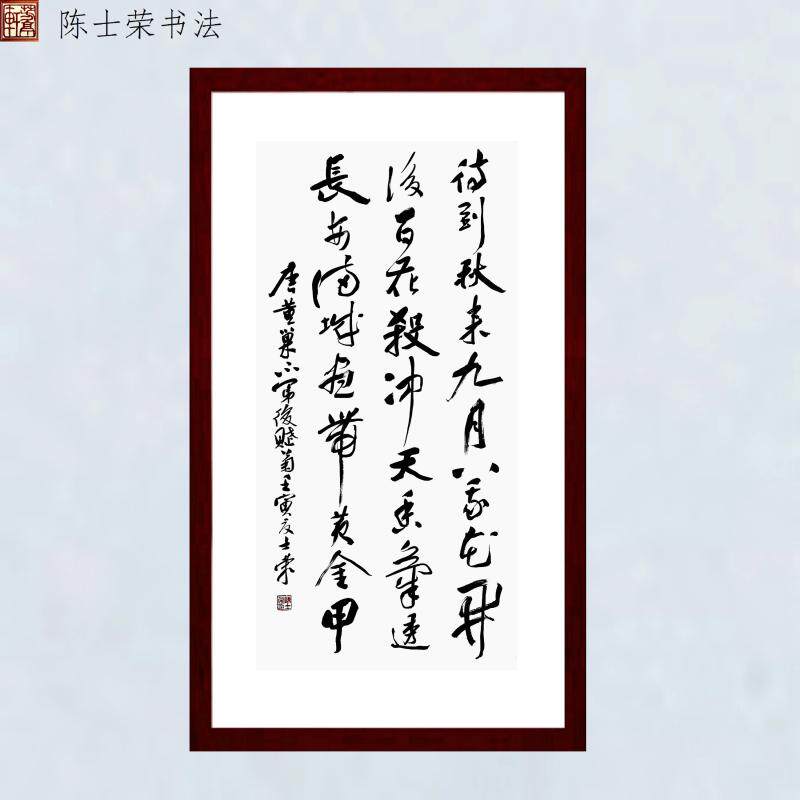 陈士荣书法
待到秋来九月八我花開
後百花殺冲天香氣透
長安滿城盡帶黄金甲
唐黄巢不第後賦菊壬寅夏士榮